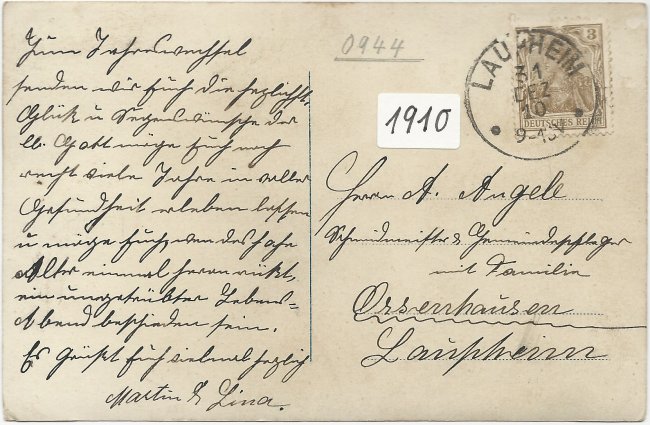 Zum Jahreswechsel
senden wir Euch die herzlichst.
Glück u Segenswünsche der
lb. Gott möge Euch noch
recht viele Jahre in voller
Gesundheit erleben lassen
u möge Euch, wen das hohe
Alter einmal heran rückt,
ein ungetrübter Lebens=
Abend beschieden sein.
Es grüßt Euch vielmal herzlich
Martin & Lina.
0944
1910
LAUPHEIM
31
DEZ
10
9-10V
3
DEUTSCHES REICH
Herrn A. Angele
Schmidmeister & Gemeindepfleger
mit Familie
Osserhausen
Laupheim